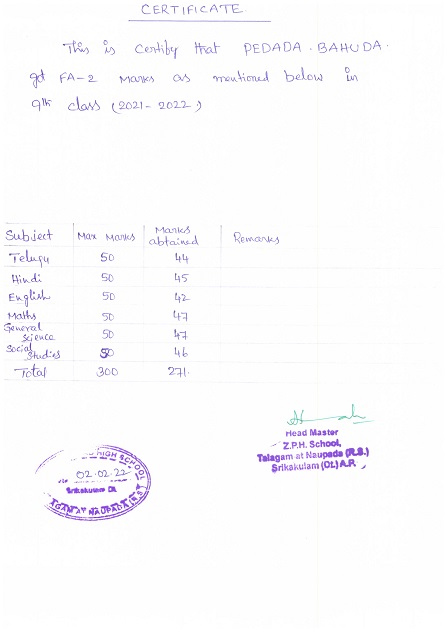 CERTIFICATE
This is Certify that PEDADA. BAHUDA.
got FA-2 Marks as mentioned below in
9th class (2021-2022)
Subject Max Marks Marks obtained Remarks
Telugu 50 44
Hindi 50 45
English 50 42
Maths 50 47
General Science 50 47
Social Studies 50 46
Total 300 271.
Head Master
Z.P.H. School,
Talagam at Naupada (R.S.)
Srikakulam (Dt.) A.P.
HIGH SCHOOL
02.02.22
Srikakulam Dt.
AGAM AT NAUPADA (R.S)